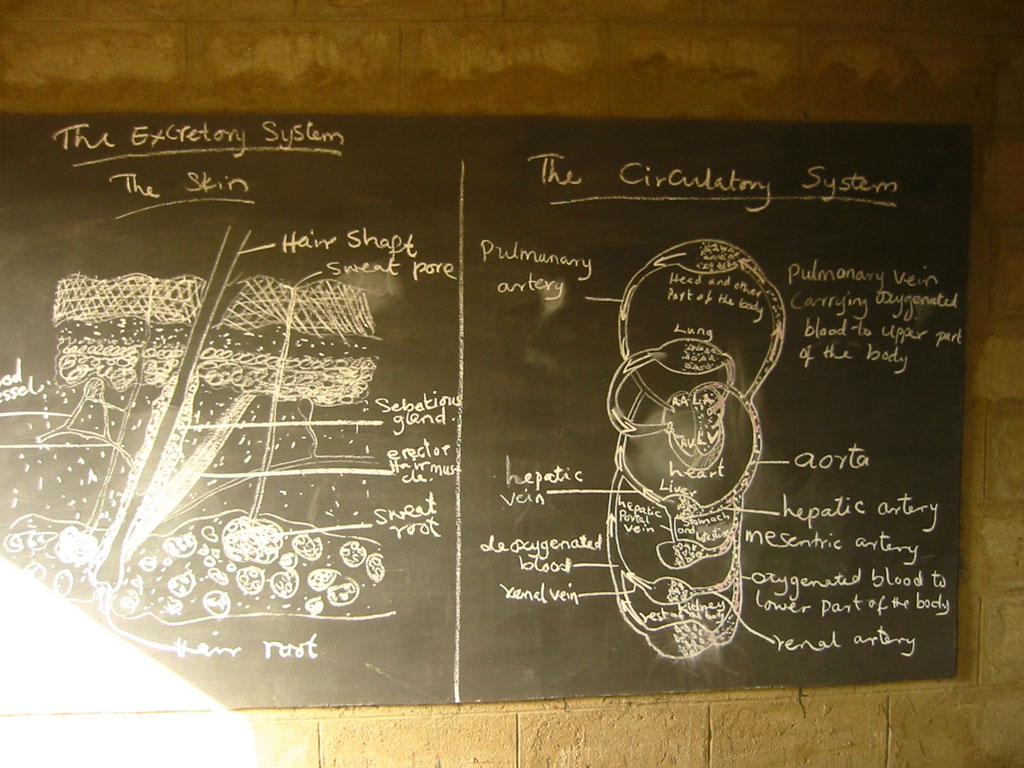 The Excretory System
The Skin
Hair Shaft
sweat pore
Sebatious
gland
erector
Hair musc
cle.
sweat
root
Hair root
The Circulatory System
Pulmonary
artery
Head and other
Part of the body
Pulmonary vein
Carrying oxygenated
blood to upper part
of the body
Lung
RA LA
RV LV
heart
aorta
hepatic
vein
Liver
hepatic
Portal
vein
Stomach
and Intestine
hepatic artery
mesentric artery
deoxygenated
blood
oxygenated blood to
lower part of the body
renal vein
Kidney
renal artery